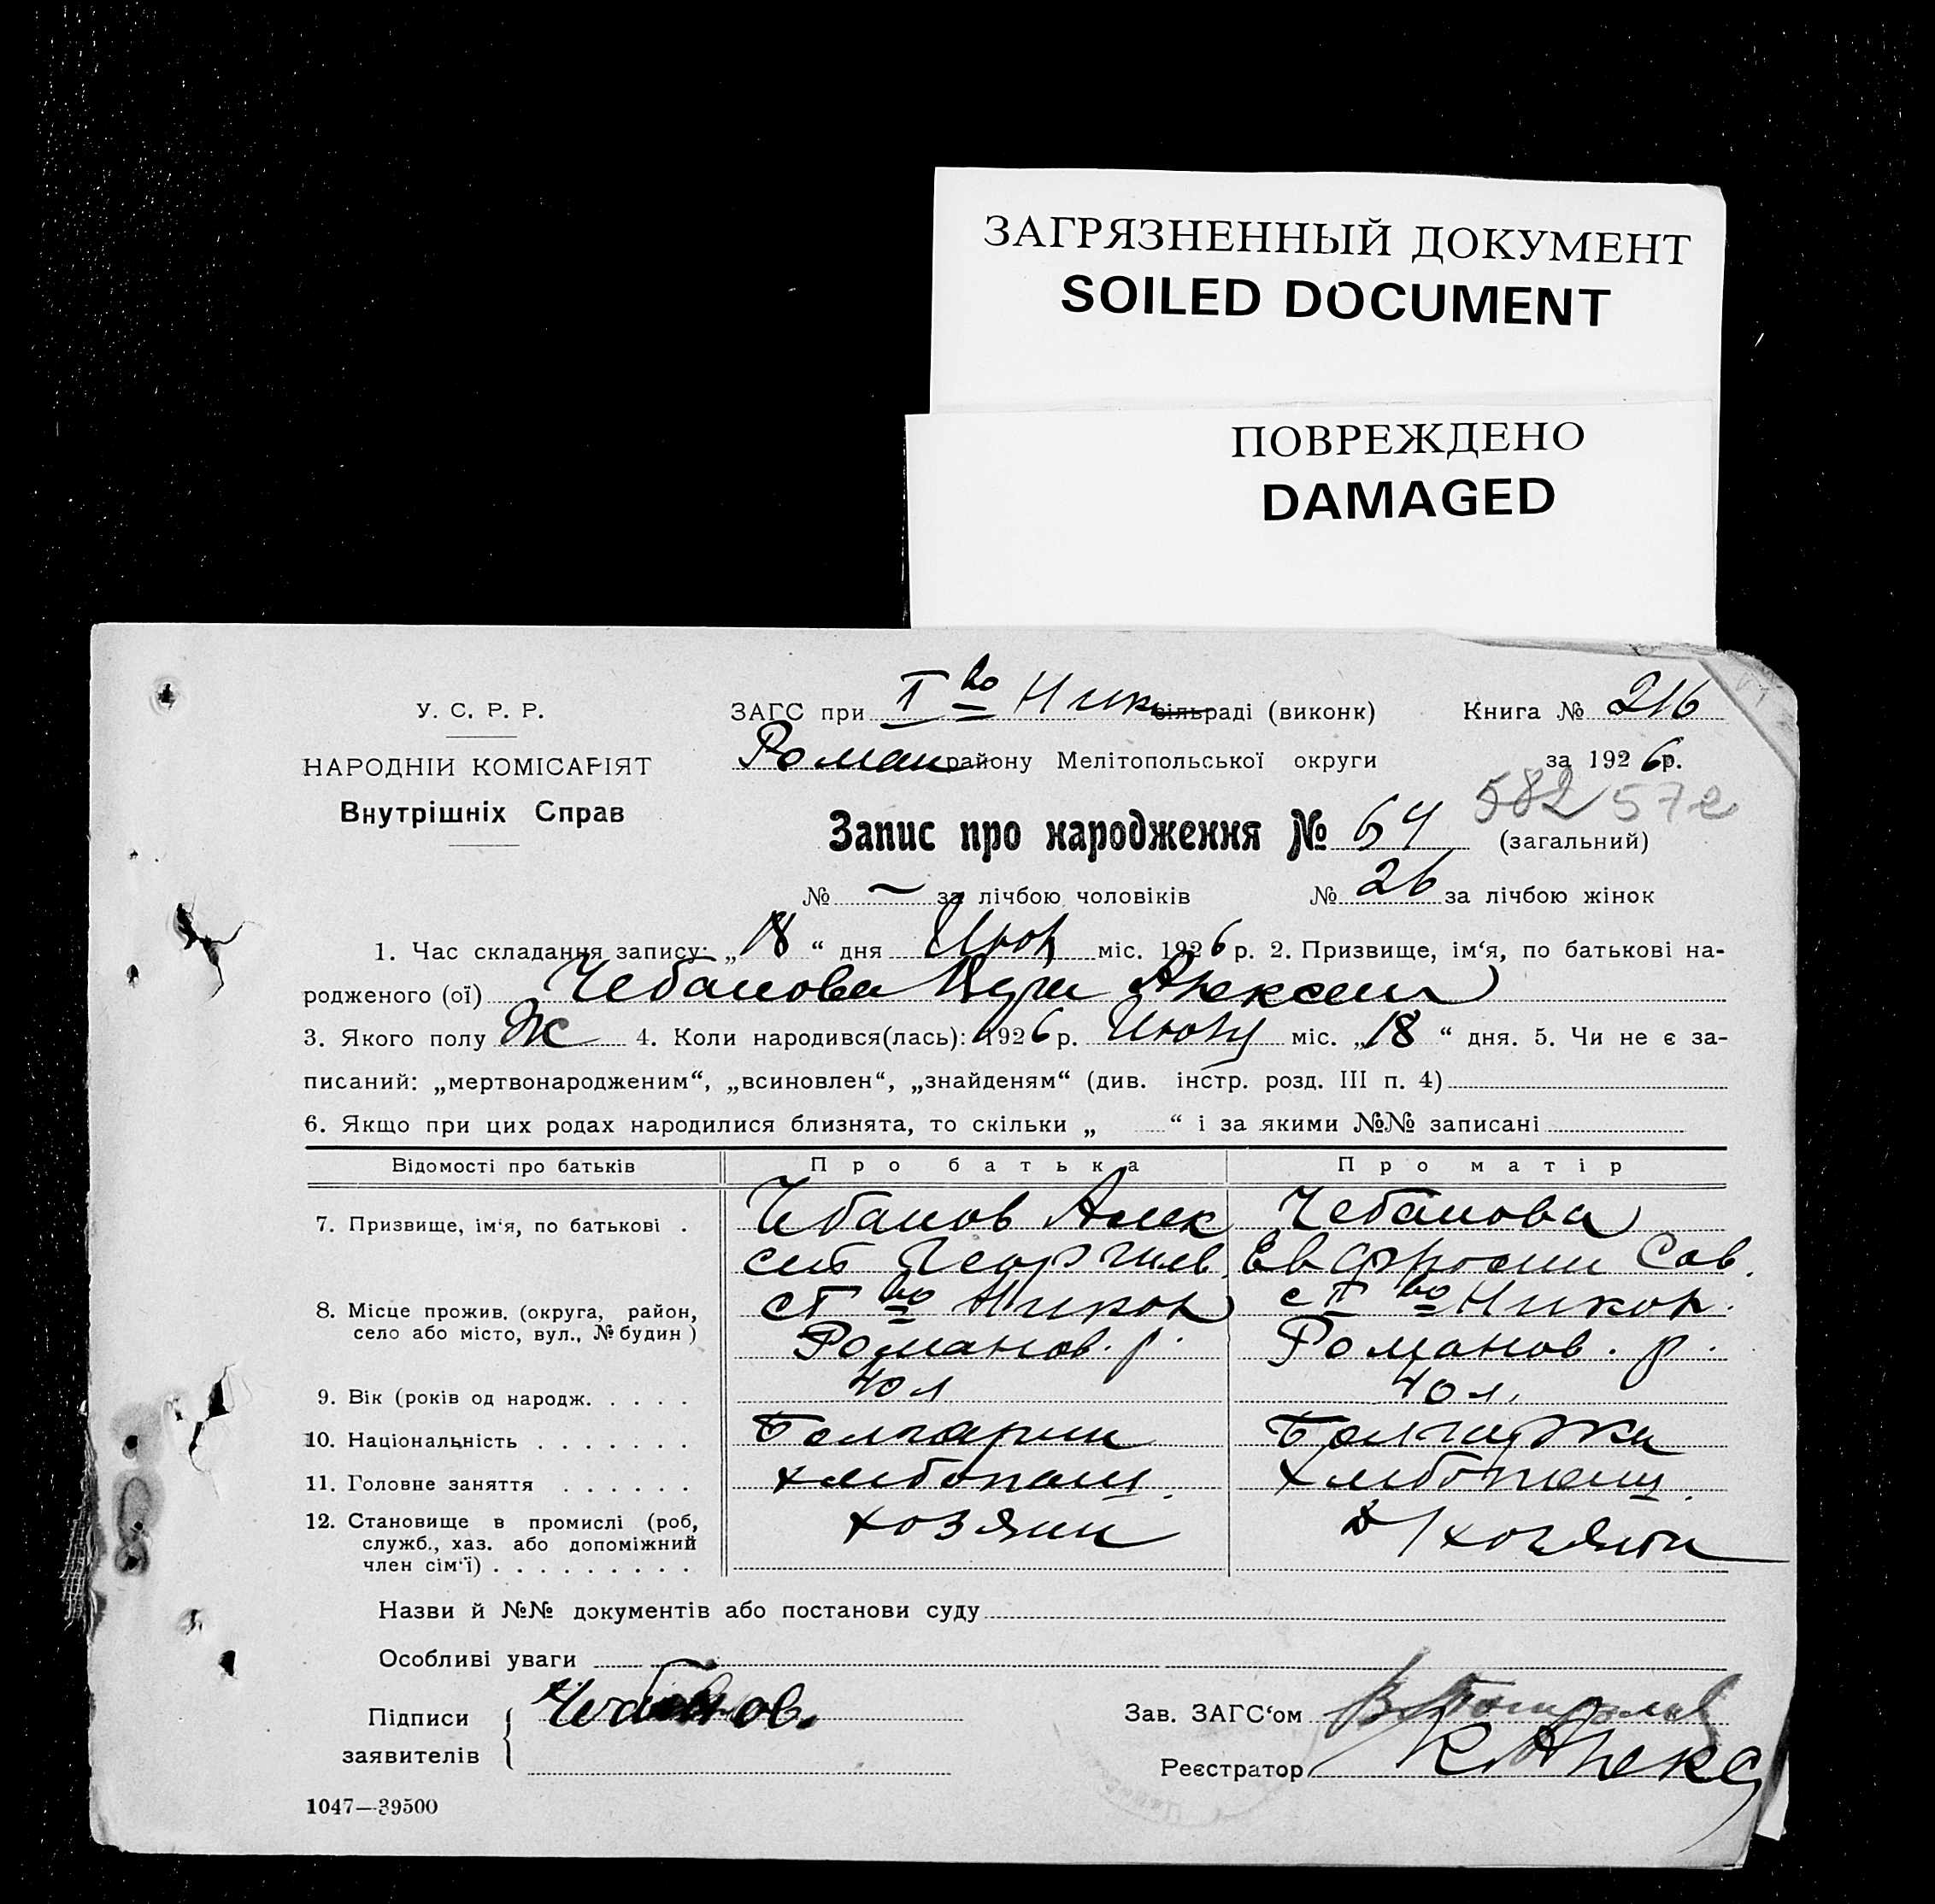 ЗАГРЯЗНЕННЫЙ ДОКУМЕНТ
SOILED DOCUMENT
ПОВРЕЖДЕНО
DAMAGED
У. С. Р. Р.
НАРОДНІЙ КОМІСАРІЯТ
Внутрішніх Справ
ЗАГС при I во Ник сільраді (виконк) Книга № 216
Роман району Мелітопольської округи за 1926 р.
582 572
Запис про народження № 64 (загальний)
№ — за лічбою чоловіків № 26 за лічбою жінок
1. Час складання запису: „18“ дня Июл міс. 1926 р. 2. Призвище, ім‘я, по батькові на-
родженого (ої) Чебанова Алексеи
3. Якого полу Ж 4. Коли народився(лась): 1926 р. Июля міс. „18“ дня. 5. Чи не є за-
писаний: „мертвонародженим“, „всиновлен“, „знайденям“ (див. інстр. розд. III п. 4)
6. Якщо при цих родах народилися близнята, то скільки „ “ і за якими №№ записані
Відомості про батьків Про батька Про матір
7. Призвище, ім‘я, по батькові . Чебанов Алек Чебанова
сей Георгиев. Евфросин Сав.
8. Місце прожив. (округа, район, село або місто, вул., № будин) с I во Никол с I во Никол.
Романов. р. Романов. р.
9. Вік (років од народж. . . . . 40 л 40 л.
10. Національність . . . . . . . Болгарин Болгарка
11. Головне заняття . . . . . . хлебопаш. хлебопаш.
12. Становище в промислі (роб, служб., хаз. або допоміжний член сім‘ї) . . . . . . . . . хозяин д/хозяйка
Назви й №№ документів або постанови суду
Особливі уваги
Підписи заявителів Чебанов.
Зав. ЗАГС‘ом
Реєстратор К Алекс
1047—39500